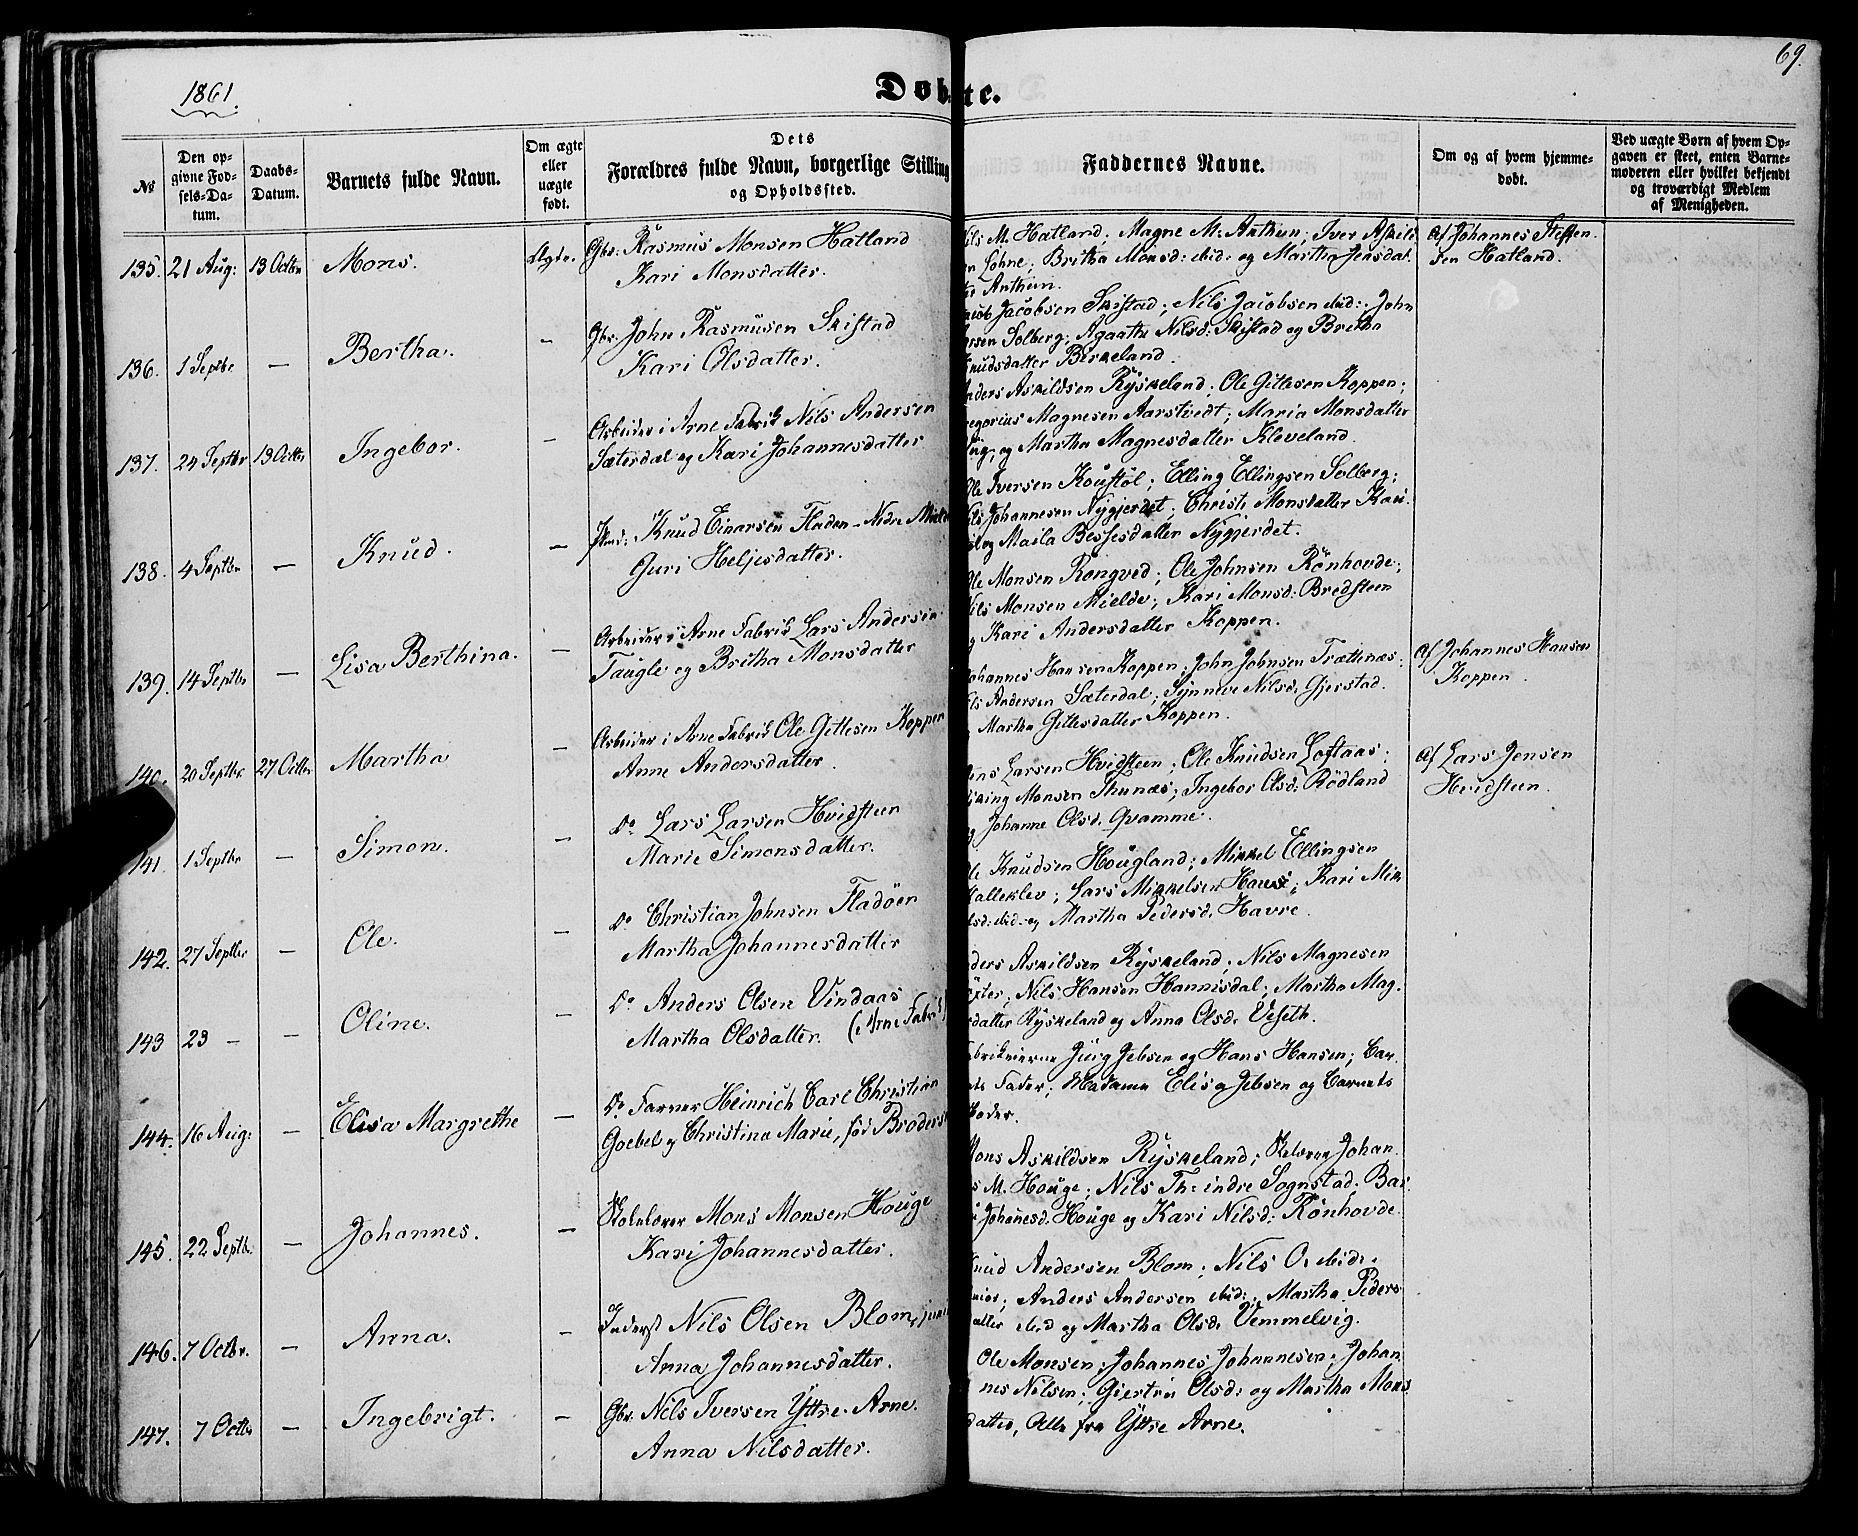 69.
1861.
Døbte.
No
Den op-
givne Fød-
sels-Da-
tum.
Daabs-
Datum.
Barnets fulde Navn.
Om ægte
eller
uægte
født.
Dets
Forældres fulde Navn, borgerlige Stilling
og Opholdssted.
Faddernes Navne.
Om og af hvem hjemme-
døbt.
Ved uægte Børn af hvem Op-
gaven er skeet, enten Barne-
moderen eller hvilket bekjendt
og troværdigt Medlem
af Menigheden.
135. 21 Aug: 13 Octbr Mons. Ægte. Gbr. Rasmus Monsen Hatland
Kari Monsdatter.
Nils M. Hatland; Magne M. Arthun; Iver Askild
sen Løhne; Britha Monsd: ibid: og Martha Jensdat.
ter Arthun.
Af Johannes Steffen.
sen Hatland.
136. 1 Septbr — Bertha. — Gbr. John Rasmusen Skistad
Kari Olsdatter.
Jacobsen Skistad; Nils Jacobsen ibid:; John
Larsen Solberg; Agaathe Nilsd: Skistad og Britha
Knudsdatter Birkeland.
137. 24 Septbr 13 Octbr Ingebor. — Arbeider i Arne Fabrik Nils Andersen
Sæterdal og Kari Johannesdatter
Anders Askildsen Ryskeland; Ole Gitlesen Koppen;
Gregorius Magnesen Aarstvedt; Maria Monsdatter
og Martha Magnesdatter Kleveland.
138. 4 Septbr — Knud. — Knud Einarsen Fladen - Nedre Mielde
Guri Heljesdatter.
Ole Iversen Koustøl; Elling Ellingsen Solberg;
Nils Johannesen Nygjerdet; Christi Monsdatter Kou-
støl og Maila Bessesdatter Nygjerdet.
139. 14 Septbr — Lisa Berthina. — Arbeider i Arne Fabrik Lars Andersen
Taugle og Britha Monsdatter
Ole Monsen Rongved; Ole Johnsen Rønhovde;
Nils Monsen Mielde; Kari Monsd: Bredsteen
og Kari Andersdatter Koppen.
140. 20 Septbr 27 Octbr Martha — Arbeider i Arne Fabrik Ole Gitlesen Koppen
Anne Andersdatter.
Johannes Hansen Koppen; John Johnsen Trættenæs;
Nils Andersen Sæterdal; Synneve Nilsd: Gjerstad.
Martha Gitlesdatter Koppen.
Af Johannes Hansen
Koppen.
141. 1 Septbr — Simon. — Do Lars Larsen Hvidsteen
Marie Simonsdatter.
Jens Larsen Hvidsteen; Ole Knudsen Loftaas;
Monsen Thunæs; Ingebor Olsd: Rødland
og Johanne Olsd. Qvamme.
Af Lars Jensen
Hvidsteen.
142. 27 Septbr — Ole. — Do Christian Johnsen Fladøen
Martha Johannesdatter
Ole Knudsen Hougland; Mikkel Ellingsen
Halleklev; Lars Mikkelsen Haus; Kari Mik
kelsd: ibid: og Martha Pedersd. Havre.
143 23 — — Oline. — Do Anders Olsen Vindaas
Martha Olsdatter. (Arne Fabrik)
Anders Askildsen Ryskeland; Nils Magnesen
Nils Hansen Hannisdal; Martha Mag.
nesdatter Ryskeland og Anna Olsd. Veseth.
144. 16 Aug: — Elisa Margrethe — Do Farver Heinrich Carl Christian
Goebel og Christina Marie, fød Broders
Fabrikeierne Jürg Jebsen og Hans Hansen; Bar.
nets Fader; Madame Elisa Jebsen og Barnets
Moder.
145. 22 Septbr. — Johannes. — Skolelærer Mons Monsen Houge
Kari Johannesdatter.
Mons Askildsen Ryskeland; Johan.
nes M. Houge; Nils Th: indre Sognstad. Bar.
Johanesd. Houge og Kari Nilsd: Rønhovde.
146. 7 Octbr. — Anna. — Inderst Nils Olsen Blom, junior
Anna Johannesdatter.
Knud Andersen Blom; Nils O. ibid:
senior; Anders Andersen ibid:; Martha Peders
datter ibid og Martha Olsd. Vemmelvig.
147. 7 Octbr — Ingebrigt. — Gbr. Nils Iversen Yttre-Arne.
Anna Nilsdatter.
Ole Monsen; Johannes Johannesen; Johan
nes Nilsen; Giertru Olsd: og Martha Mons
datter, Alle fra Yttre Arne.